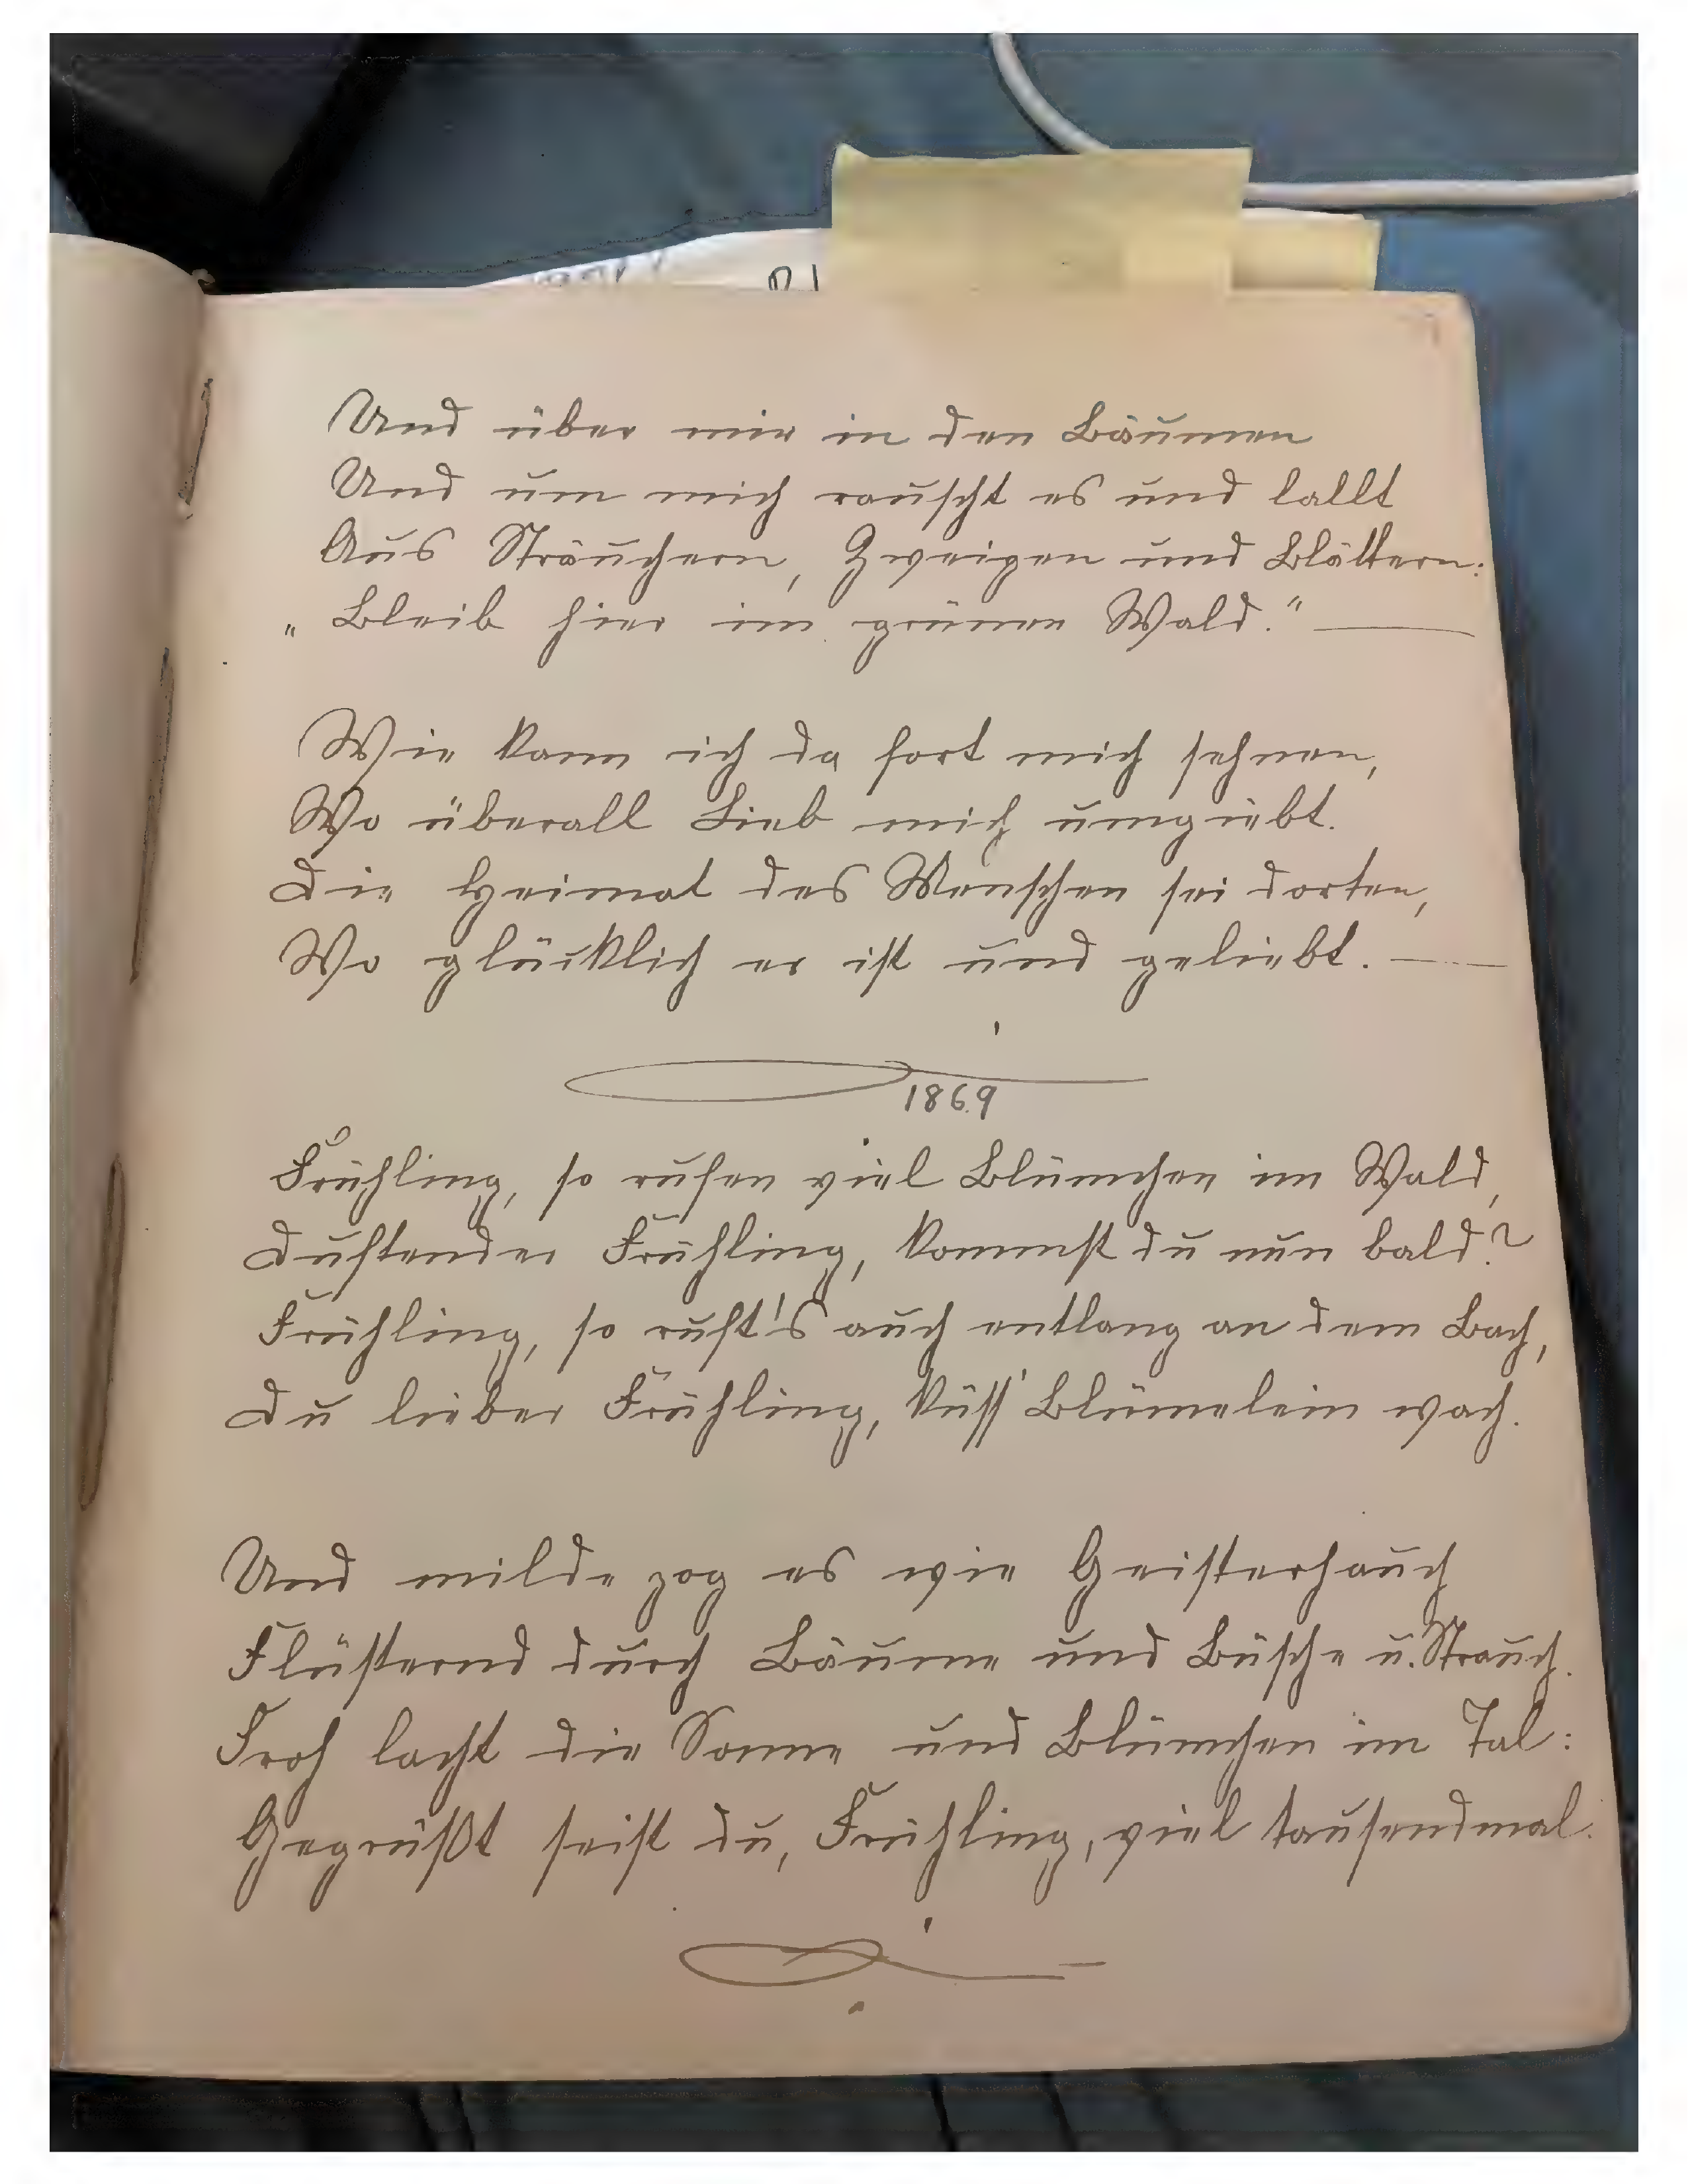 Und über mir in den Bäumen
Und um mich rauscht es und lallt
Aus Sträuchern, Zweigen und Blättern:
„Bleib hier im grünen Wald." —
Wie kann ich da fort mich sehnen,
Wo überall Lieb mich umgiebt.
Die Heimat des Menschen sei dorten,
Wo glücklich er ist und geliebt. —
1869
Frühling, so rufen viel Blümchen im Wald,
Duftender Frühling, kommst du nun bald?
Frühling, so ruft's auch entlang an dem Bach,
Du lieber Frühling, küss' Blümelein wach.
Und milde zog es wie Geisterhauch
Flüsternd durch Bäume und Büsche u. Strauch.
Froh lacht die Sonne und Blümchen im Tal:
Gegrüßt seist du, Frühling, viel tausendmal.